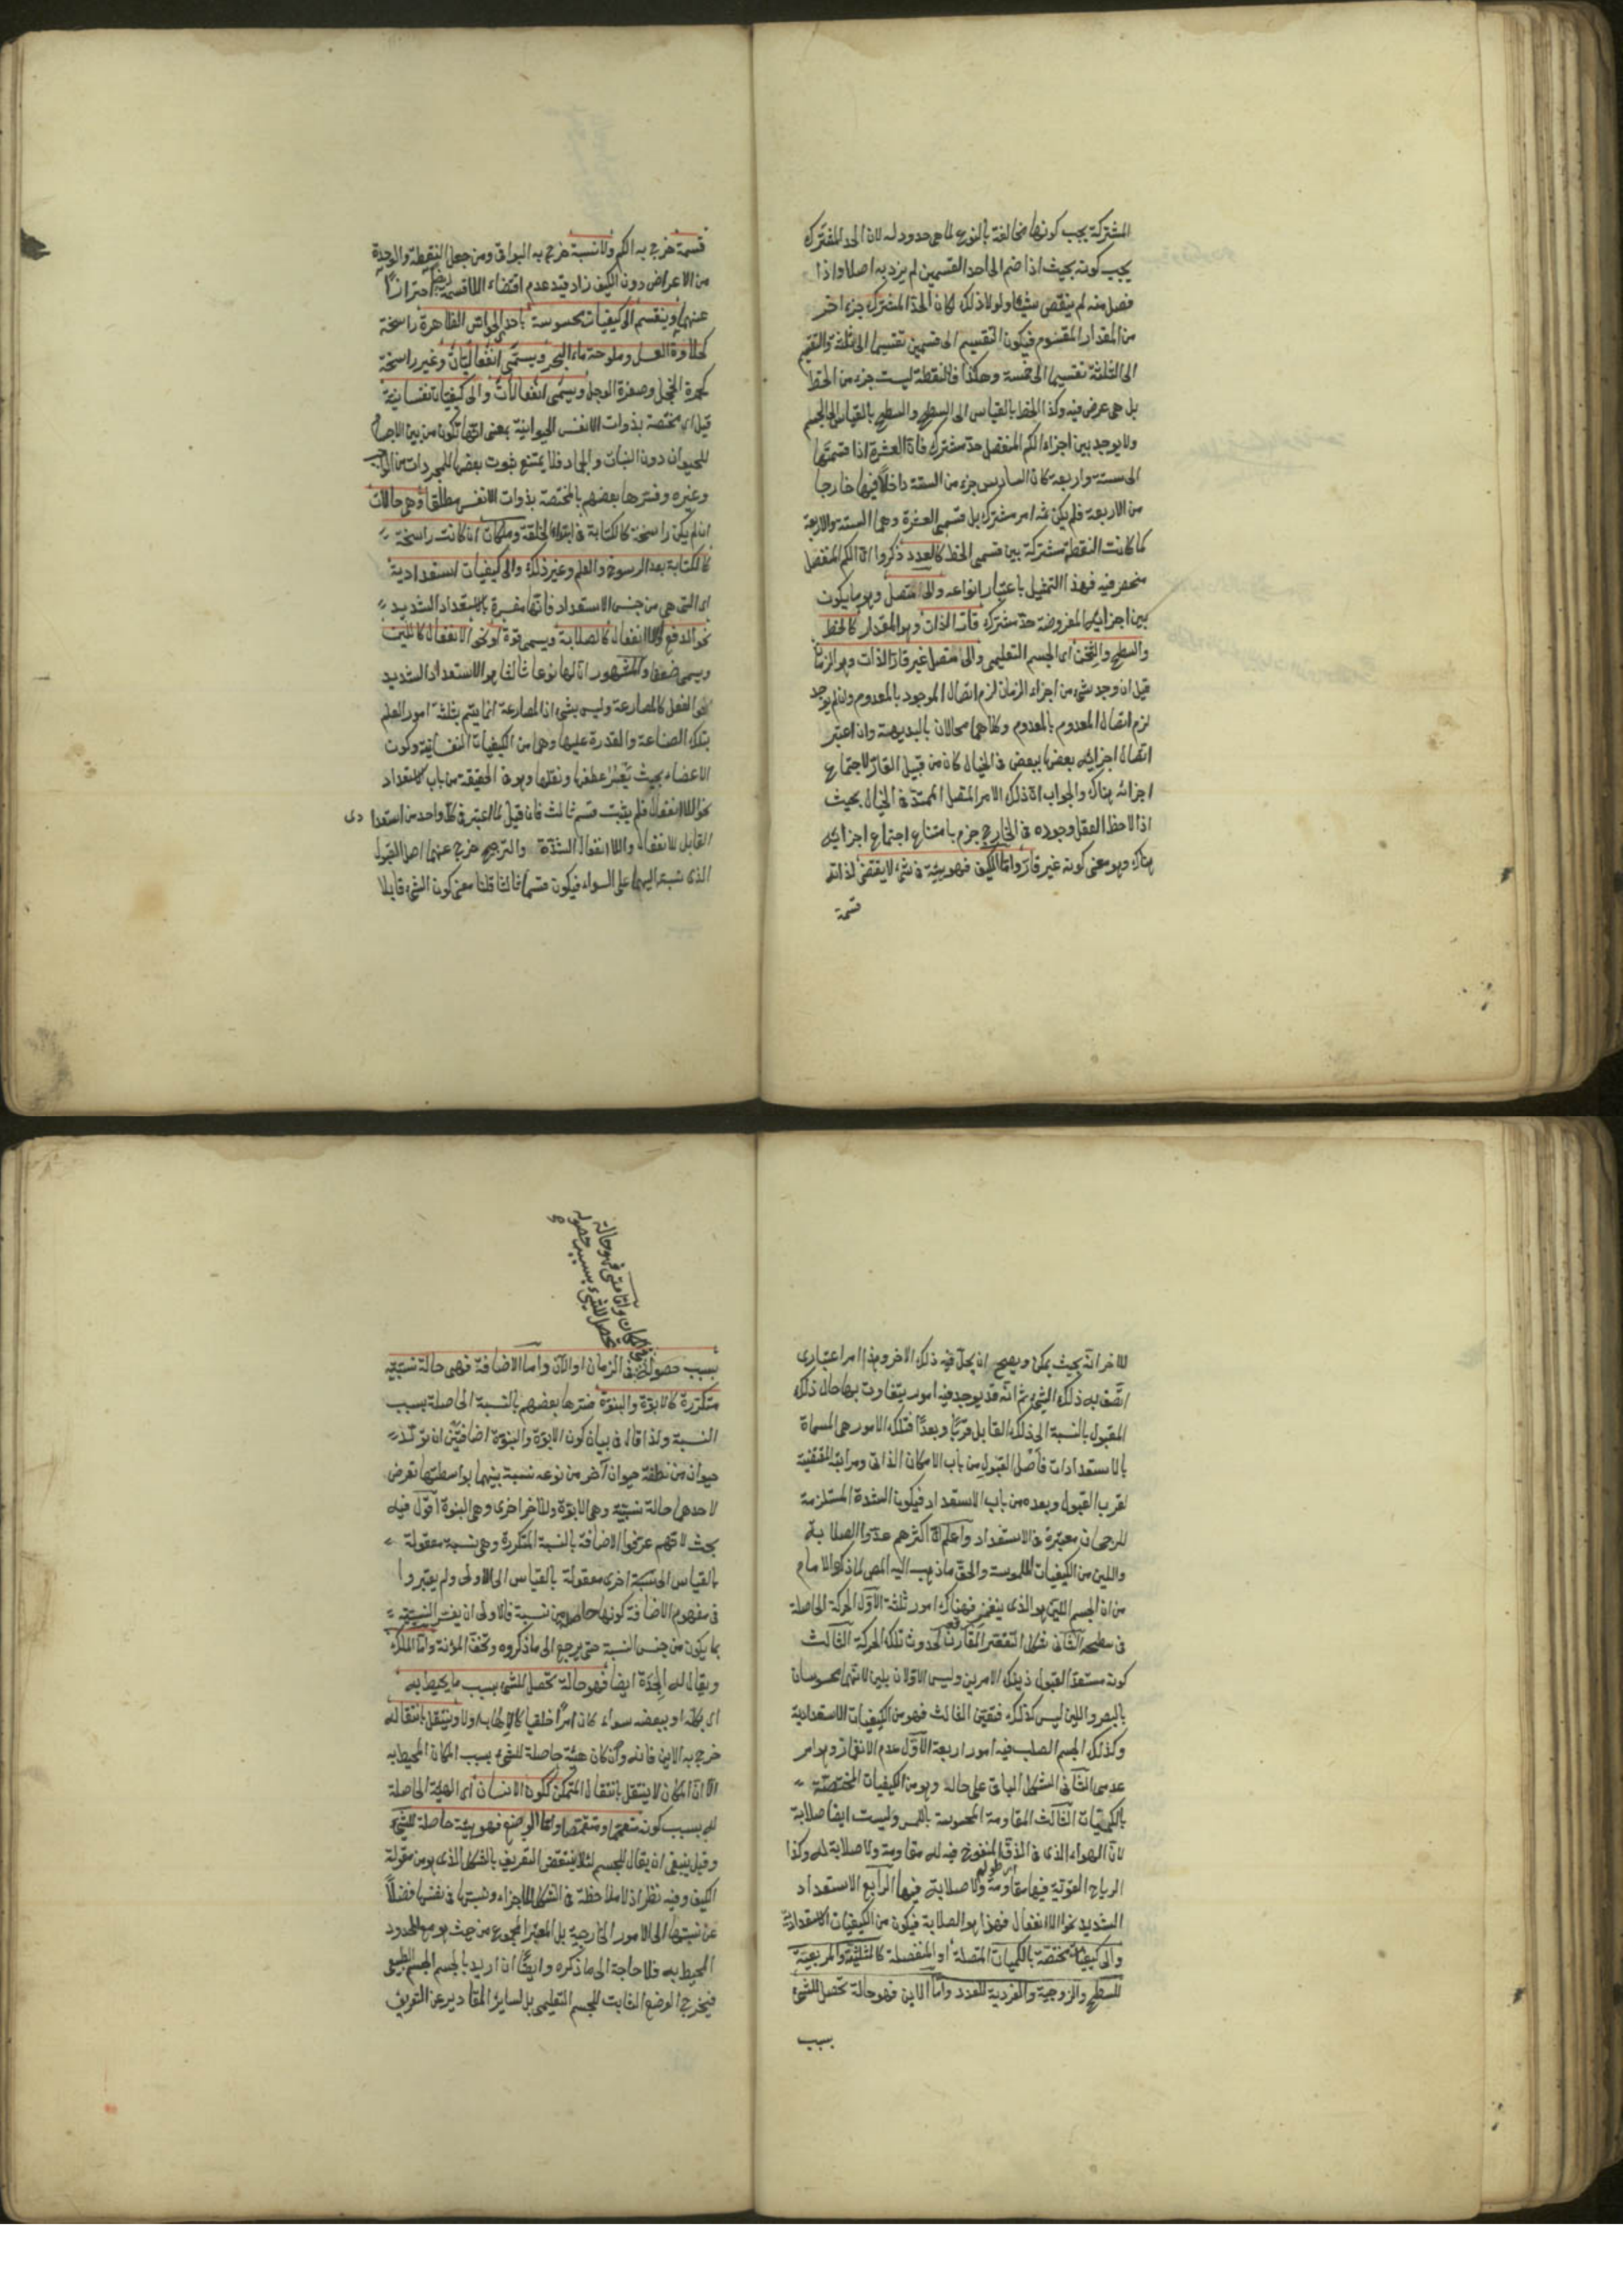 المشتركة يجب كونها مخالفة بالنوع لما هى حدود له لان الحد المشترك
يجب كونه بحيث اذا ضم الى احد القسمين لم يزد به اصلا واذا
فصل منه لم ينقص شيئا ولولا ذلك لكان الحد المشترك جزء اخر
من المقدار المقسوم فيكون التقسيم الى قسمين تقسيما الى ثلثة والتقسيم
الى الثلثة تقسيما الى خمسة وهكذا فالنقطة ليست جزء من الخط
بل هى عرض فيه وكذا الخط بالقياس الى السطح والسطح بالقياس الى الجسم
ولا يوجد بين اجزاء الكم المنفصل حد مشترك فان العشرة اذا قسمتها
الى ستة واربعة كان السادس جزء من الستة داخلا فيها خارجا
من الاربعة فلم يكن ثمه امر مشترك بين قسمى العشرة وهما الستة والاربعة
كما كانت النقطة مشتركة بين قسمى الخط كالعدد ذكروا ان الكم المنفصل
منحصر فيه فهذا التمثيل باعتبار انواعه والى متصل وهو ما يكون
بين اجزائه المفروضة حد مشترك قار الذات وهو المقدار كالخط
والسطح والثخن اى الجسم التعليمى والى متصل غير قار الذات وهو الزمان
قيل ان وجد شئ من اجزاء الزمان لزم اتصال الموجود بالمعدوم وان لم يوجد
لزم اتصال المعدوم بالمعدوم وكلاهما محالان بالبديهة وان اعتبر
اتصال اجزائه بعضها ببعض فى الخيال كان من قبيل القار لاجتماع
اجزائه هناك والجواب ان ذلك الامر المتصل الممتد فى الخيال بحيث
اذا لاحظ العقل وجوده فى الخارج جزم بامتناع اجتماع اجزائه
هناك وهو معنى كونه غير قار واما الكيف فهو هيئة فى شئ لا يقتضى لذاته
قسمة
قسمة خرج به الكم ولا نسبة خرج به البواقى ومن جعل النقطة والوحدة
من الاعراض دون الكيف زاد قيد عدم اقتضاء اللاقسمة ايضا احترازا
عنهما وينقسم الى كيفيات محسوسة باحدى الحواس الظاهرة راسخة
كحلاوة العسل وملوحة ماء البحر ويسمى انفعاليات وغير راسخة
كحمرة الخجل وصفرة الوجل ويسمى انفعالات والى كيفيات نفسانية
قيل اى مختصة بذوات الانفس الحيوانية بمعنى انها تكون من بين الاجسام
للحيوان دون النبات والجماد فلا يمتنع ثبوت بعضها للمجردات من الواجب
وغيره وفسرها بعضهم بالمختصة بذوات الانفس مطلقا وهى حالات
ان لم يكن راسخة كالكتابة فى ابتداء الخلقة وملكات ان كانت راسخة
كالكتابة بعد الرسوخ والعلم وغير ذلك والى كيفيات استعدادية
اى التى هى من جنس الاستعداد فانها مفسرة بالاستعداد الشديد
نحو الدفع واللاانفعال كالصلابة ويسمى قوة او نحو الانفعال كاللين
ويسمى ضعفا والمشهور ان لها نوعا ثالثا هو الاستعداد الشديد
نحو الفعل كالمصارعة وليس بشئ اذ المصارعة انما يتم بثلثة امور العلم
بتلك الصناعة والقدرة عليها وهما من الكيفيات النفسانية وكون
الاعضاء بحيث يعسر عطفها ونقلها وهو فى الحقيقة من باب الاستعداد
نحو اللاانفعال فلم يثبت قسم ثالث فان قيل لما اعتبر فى كل واحد من استعدادى
القابل للانفعال واللاانفعال الشدة والترجيح خرج عنهما اصل القبول
الذى نسبته اليهما على السواء فيكون قسما ثالثا قلنا معنى كون الشئ قابلا
للاخر انه بحيث يمكن ويصح ان يحل فيه ذلك الاخر وهذا امر اعتبارى
اتصف به ذلك الشئ ثم انه قد يوجد فيه امور يتفاوت بها حال ذلك
المقبول بالنسبة الى ذلك القابل قربا وبعدا فتلك الامور هى المسماة
بالاستعدادات فاصل القبول من باب الامكان الذاتى ومراتبه المقتضية
لقرب القبول وبعده من باب الاستعداد فيكون الشدة المستلزمة
للرجحان معتبرة فى الاستعداد واعلم ان اكثرهم عدوا الصلابة
واللين من الكيفيات الملموسة والحق ما ذهب اليه المص لما ذكره الامام
من ان الجسم اللين هو الذى ينغمز فهناك امور ثلثة الاول الحركة الحاصلة
فى سطحه الثانى شكل التقعر المقارن لحدوث تلك الحركة الثالث
كونه مستعدا لقبول ذينك الامرين وليس الاولان بلين لانهما محسوسان
بالبصر واللين ليس كذلك فتعين الثالث فهو من الكيفيات الاستعدادية
وكذلك الجسم الصلب فيه امور اربعة الاول عدم الانغماز وهو امر
عدمى الثانى الشكل الباقى على حاله وهو من الكيفيات المختصة
بالكميات الثالث المقاومة المحسوسة باللمس وليست ايضا صلابة
لان الهواء الذى فى الزق المنفوخ فيه له مقاومة ولا صلابة له وكذا
الرياح القوية فيها مقاومة ولا صلابة فيها الرابع الاستعداد
الشديد نحو اللاانفعال فهذا هو الصلابة فيكون من الكيفيات الاستعدادية
والى كيفيات مختصة بالكميات المتصلة او المنفصلة كالمثلثية والمربعية
للسطح والزوجية والفردية للعدد واما الاين فهو حالة تحصل للشئ
بسبب
فى المكان واما متى فهو حالة
تحصل للشئ بسبب حصوله
بسبب حصوله فى الزمان او الآن واما الاضافة فهى حالة نسبية
متكررة كالابوة والبنوة فسرها بعضهم بالنسبة الحاصلة بسبب
النسبة ولذا قال فى بيان كون الابوة والبنوة اضافتين ان تولد
حيوان من نطفة حيوان آخر من نوعه نسبة بينهما بواسطتها تعرض
لاحدهما حالة نسبية وهى الابوة وللاخر اخرى وهى البنوة اقول فيه
بحث لانهم عرفوا الاضافة بالنسبة المتكررة وهى نسبة معقولة
بالقياس الى نسبة اخرى معقولة بالقياس الى الاولى ولم يعتبروا
فى مفهوم الاضافة كونها حاصلة من نسبة فالاولى ان يفسر النسبية
بما يكون من جنس النسبة حتى يرجع الى ما ذكروه وتخف المؤنة واما الملك
ويقال له الجدة ايضا فهو حالة تحصل للشئ بسبب ما يحيط به
اى بكله او ببعضه سواء كان امرا خلقيا كالاهاب اولا وينتقل بانتقاله
خرج به الاين فانه وان كان هيئة حاصلة للشئ بسبب المكان المحيط به
الا ان المكان لا ينتقل بانتقال المتمكن ككون الانسان اى الهيئة الحاصلة
له بسبب كونه متعمما ومتقمصا واما الوضع فهو هيئة حاصلة للشئ
وقيل ينبغى ان يقال للجسم لئلا ينتقض التعريف بالشكل الذى هو من مقولة
الكيف وفيه نظر اذ لا ملاحظة فى الشكل للاجزاء ونسبتها فى نفسها فضلا
عن نسبتها الى الامور الخارجية بل المعتبر المجموع من حيث هو مع الحدود
المحيط به فلا حاجة الى ما ذكره وايضا ان اريد بالجسم الجسم الطبيعى
فيخرج الوضع الثابت للجسم التعليمى بل لسائر المقادير عن التعريف